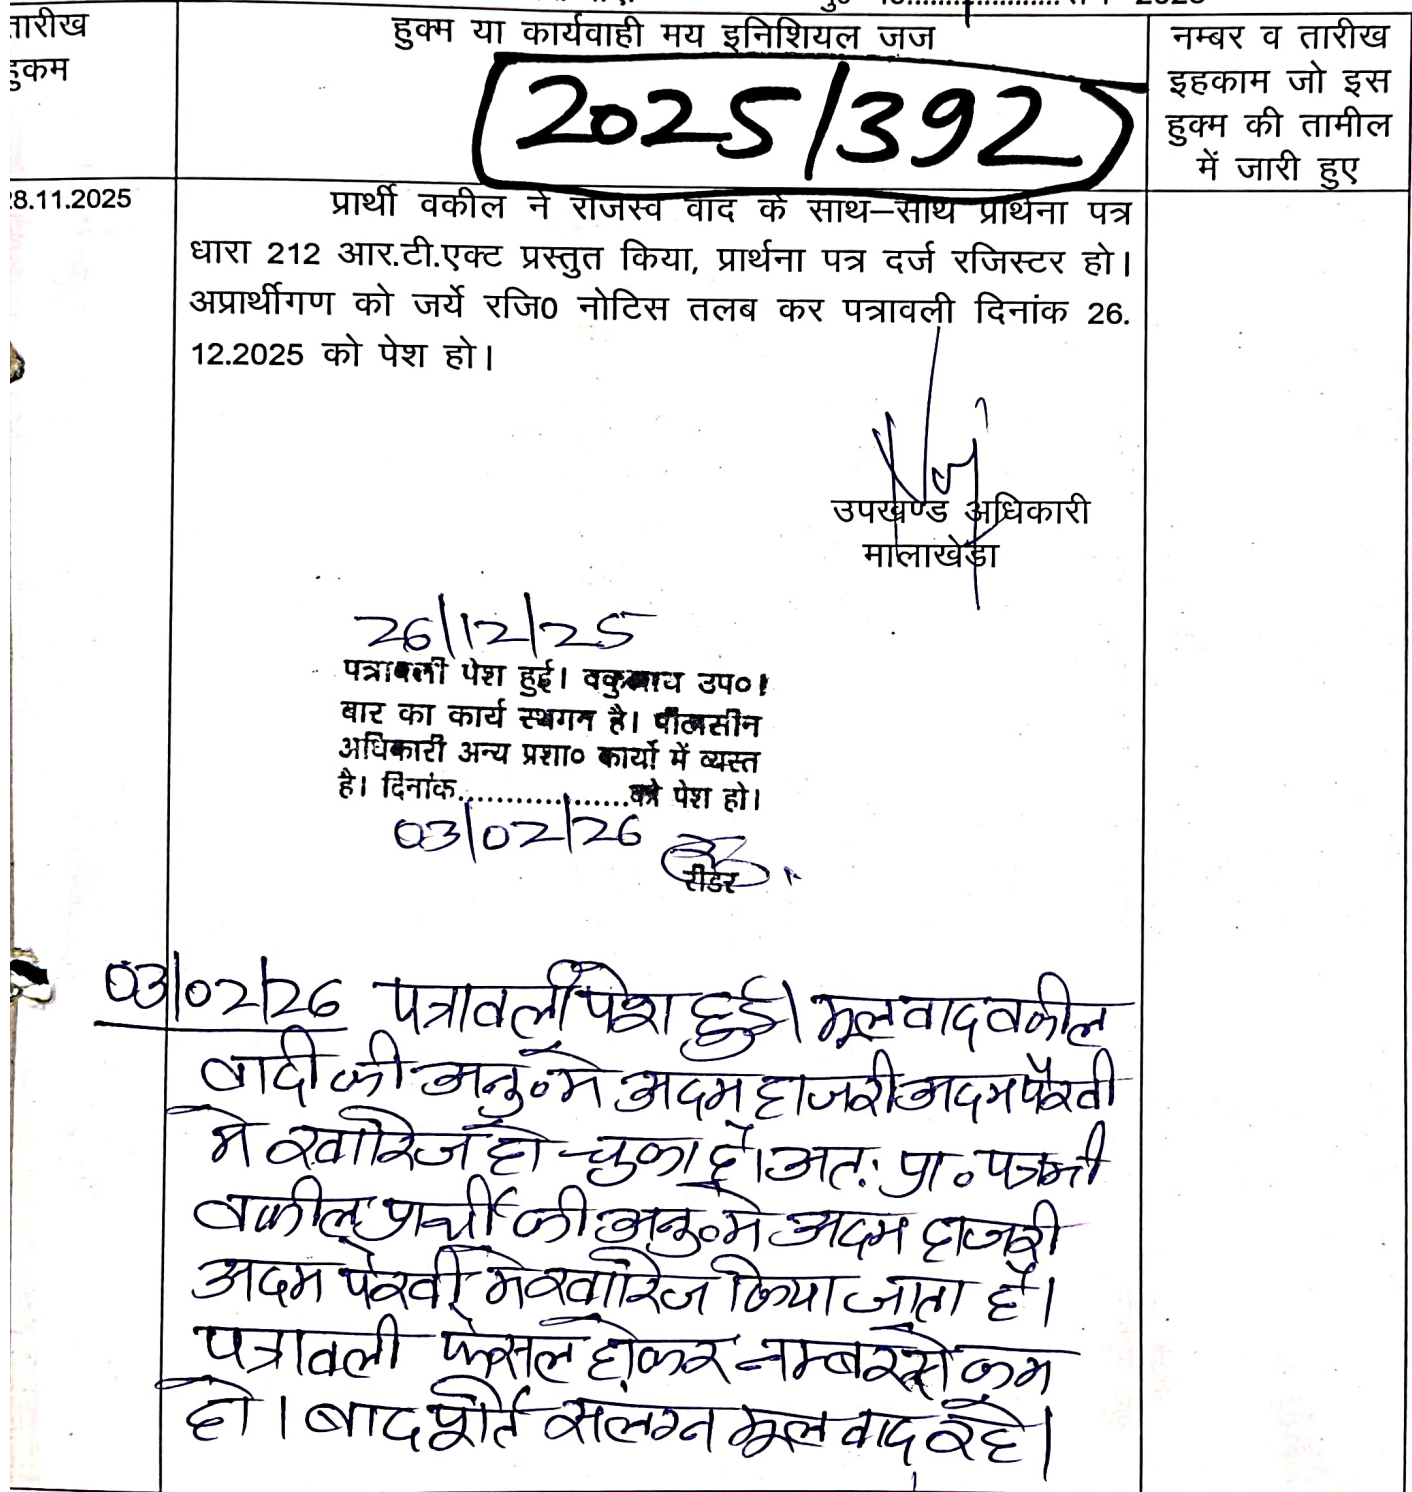 तारीख हुकम
हुक्म या कार्यवाही मय इनिशियल जज
नम्बर व तारीख
इहकाम जो इस
हुक्म की तामील
में जारी हुए
2025/392
8.11.2025
प्रार्थी वकील ने राजस्व वाद के साथ–साथ प्रार्थना पत्र
धारा 212 आर.टी.एक्ट प्रस्तुत किया, प्रार्थना पत्र दर्ज रजिस्टर हो।
अप्रार्थीगण को जर्ये रजि0 नोटिस तलब कर पत्रावली दिनांक 26.
12.2025 को पेश हो।
उपखण्ड अधिकारी
मालाखेड़ा
26/12/25
पत्रावली पेश हुई। वकुलाय उप०।
बार का कार्य स्थगन है। पीठासीन
अधिकारी अन्य प्रशा० कार्यो में व्यस्त
है। दिनांक..................को पेश हो।
03/02/26
रीडर
03/02/26 पत्रावली पेश हुई। मूल वाद वकील
वादी की अनु० मे अदम हाजरी अदम पैरवी
मे खारिज हो चुका है। अतः प्रा० पत्र भी
वकील प्रार्थी की अनु० मे अदम हाजरी
अदम पैरवी मे खारिज किया जाता है।
पत्रावली फैसल होकर नम्बर से कम
हो। बाद पूर्ति संलग्न मूल वाद रहे।